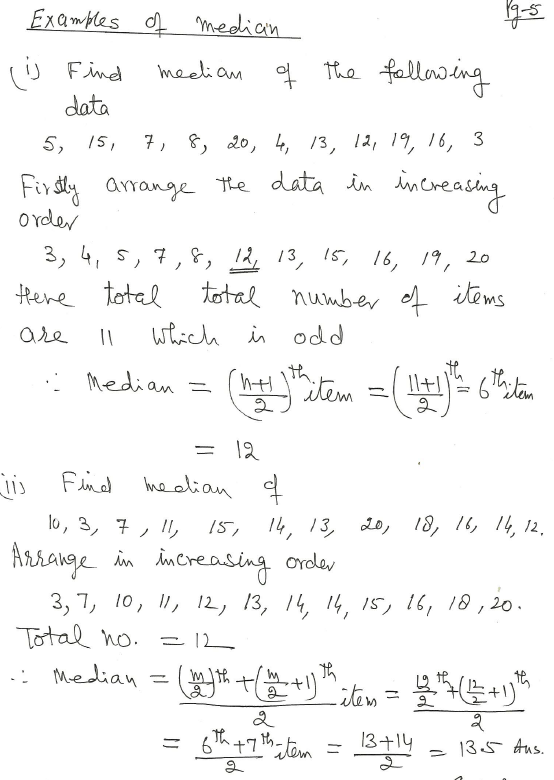 Examples of median
Pg-5
(i) Find median of the following
data
5, 15, 7, 8, 20, 4, 13, 12, 19, 16, 3
Firstly arrange the data in increasing
order
3, 4, 5, 7, 8, 12, 13, 15, 16, 19, 20
Here total total number of items
are 11 which is odd
∴ Median = ((n+1)/2)th item = ((11+1)/2)th = 6th item
= 12
(ii) Find median of
10, 3, 7, 11, 15, 14, 13, 20, 18, 16, 14, 12.
Arrange in increasing order
3, 7, 10, 11, 12, 13, 14, 14, 15, 16, 18, 20.
Total no. = 12
∴ Median = ((n/2)th + (n/2 + 1)th)/2 item = (12/2 th + (12/2 + 1)th)/2
= (6th + 7th)/2 item = (13+14)/2 = 13.5 Ans.